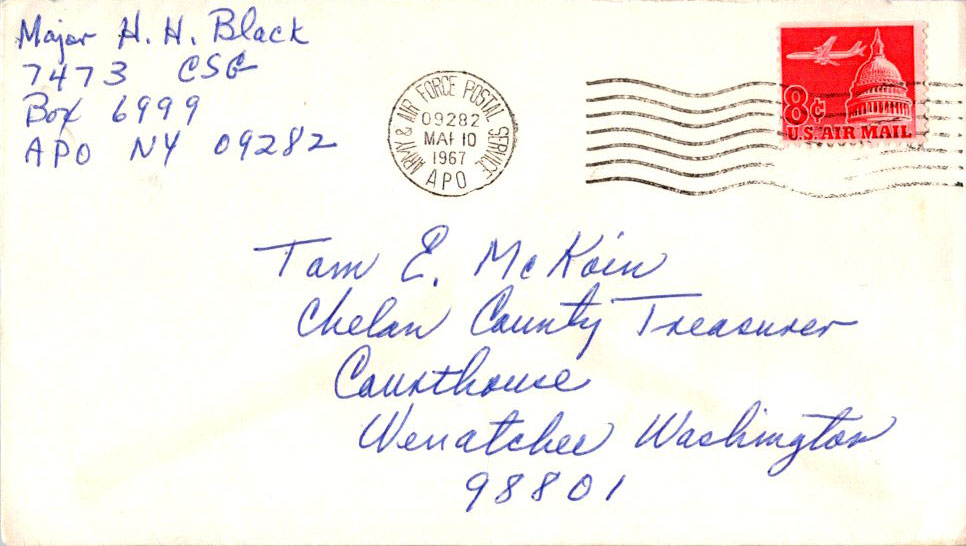 Major H. H. Black
7473 CSG
Box 6999
APO NY 09282
ARMY & AIR FORCE POSTAL SERVICE
09282
MAR 10
1967
APO
8¢
U.S. AIR MAIL
Tom E. McKoin
Chelan County Treasurer
Courthouse
Wenatchee Washington
98801